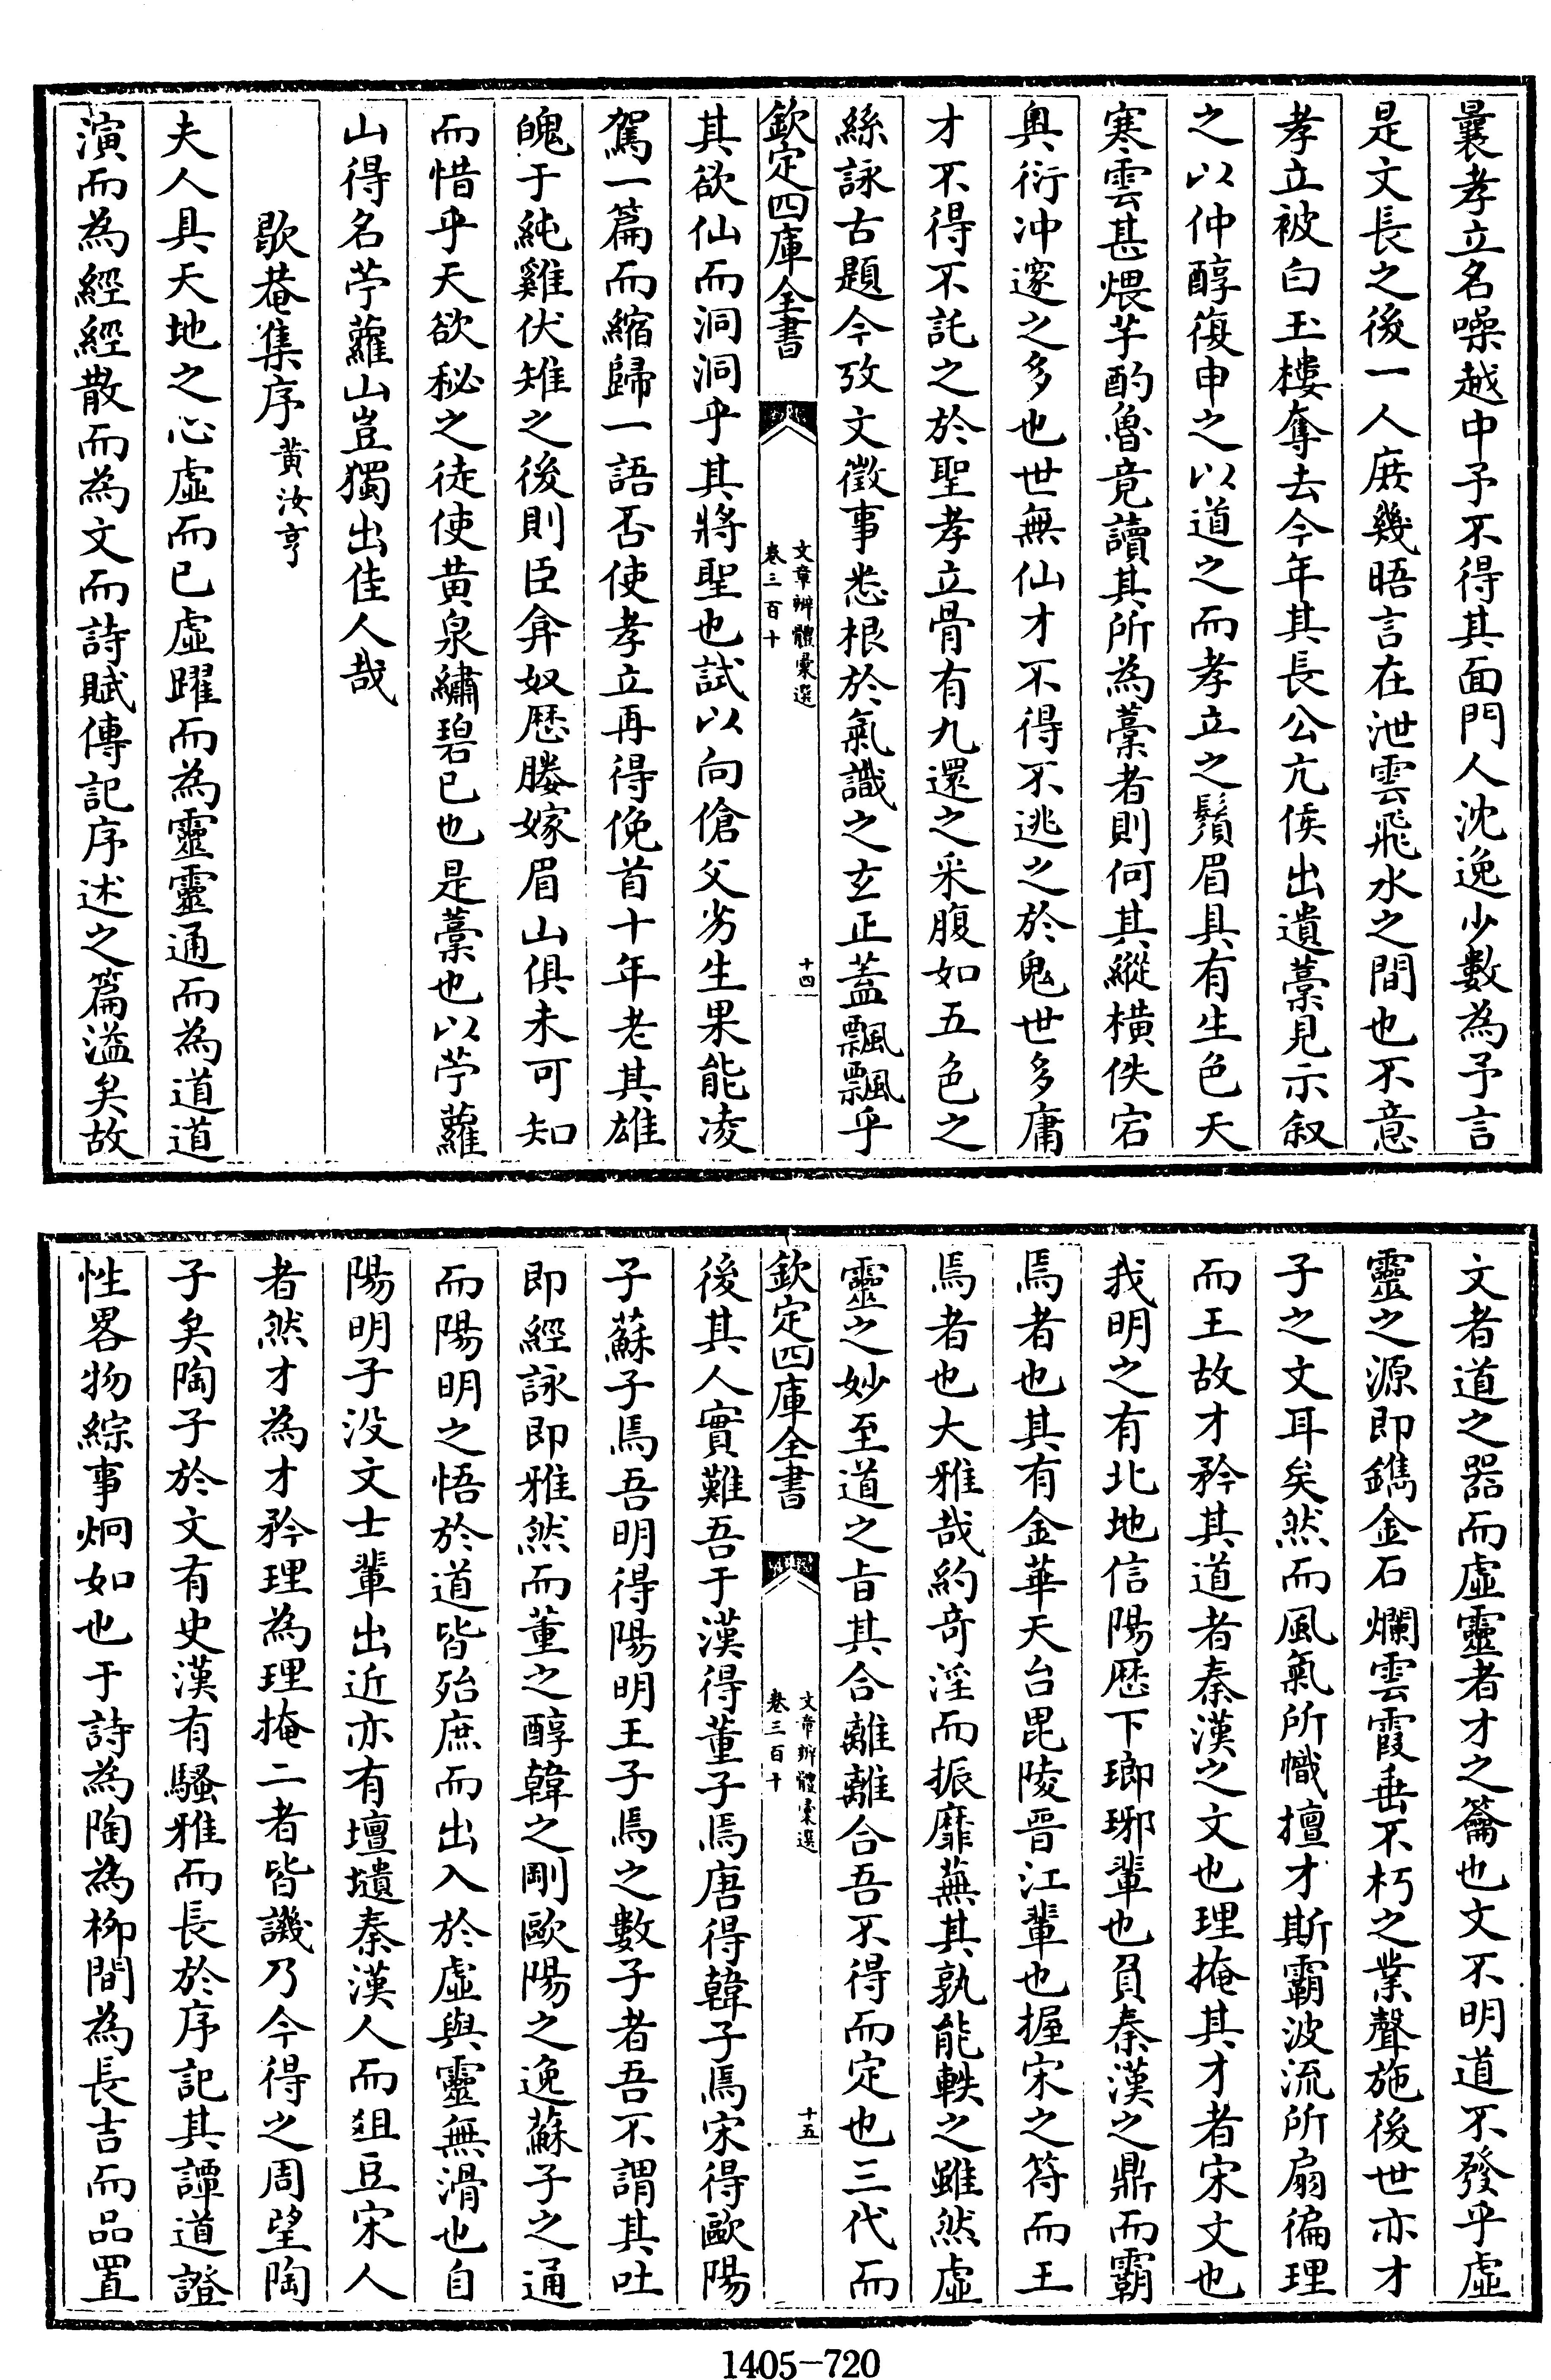 曩孝立名噪越中予不得其面門人沈逸少數為予言
是文長之後一人庶幾晤言在泄雲飛水之間也不意
孝立被白玉樓奪去今年其長公亢侯出遺藁見示叙
之以仲醇復申之以道之而孝立之鬚眉具有生色天
寒雲甚煨芋酌魯竟讀其所為藁者則何其縱橫佚宕
奥衍冲邃之多也世無仙才不得不逃之於鬼世多庸
才不得不託之於聖孝立骨有九還之采腹如五色之
絲詠古題今攷文徵事悉根於氣識之玄正蓋飄飄乎
欽定四庫全書
文章辨體彚選
卷三百十
十四
其欲仙而洞洞乎其將聖也試以向傖父劣生果能凌
駕一篇而縮歸一語否使孝立再得俛首十年老其雄
魄于純雞伏雉之後則臣弇奴歴媵嫁眉山俱未可知
而惜乎天欲秘之徒使黄泉繡碧已也是藁也以苧蘿
山得名苧蘿山豈獨出佳人哉
歇菴集序 黄汝亨
夫人具天地之心虛而已虛躍而為靈靈通而為道道
演而為經經散而為文而詩賦傳記序述之篇溢矣故
文者道之器而虛靈者才之籥也文不明道不發乎虛
靈之源即鐫金石爛雲霞垂不朽之業聲施後世亦才
子之文耳矣然而風氣所幟擅才斯霸波流所扇徧理
而王故才矜其道者秦漢之文也理掩其才者宋文也
我明之有北地信陽歴下瑯琊輩也負秦漢之鼎而霸
焉者也其有金華天台毘陵晋江輩也握宋之符而王
焉者也大雅哉約奇淫而振靡蕪其孰能軼之雖然虛
靈之妙至道之旨其合離離合吾不得而定也三代而
欽定四庫全書
文章辨體彚選
卷三百十
十五
後其人實難吾于漢得董子焉唐得韓子焉宋得歐陽
子蘇子焉吾明得陽明王子焉之數子者吾不謂其吐
即經詠即雅然而董之醇韓之剛歐陽之逸蘇子之通
而陽明之悟於道皆殆庶而出入於虛與靈無滑也自
陽明子没文士輩出近亦有壇壝秦漢人而俎豆宋人
者然才為才矜理為理掩二者皆譏乃今得之周望陶
子矣陶子於文有史漢有騷雅而長於序記其譚道證
性畧物綜事炯如也于詩為陶為柳間為長吉而品置
1405－720